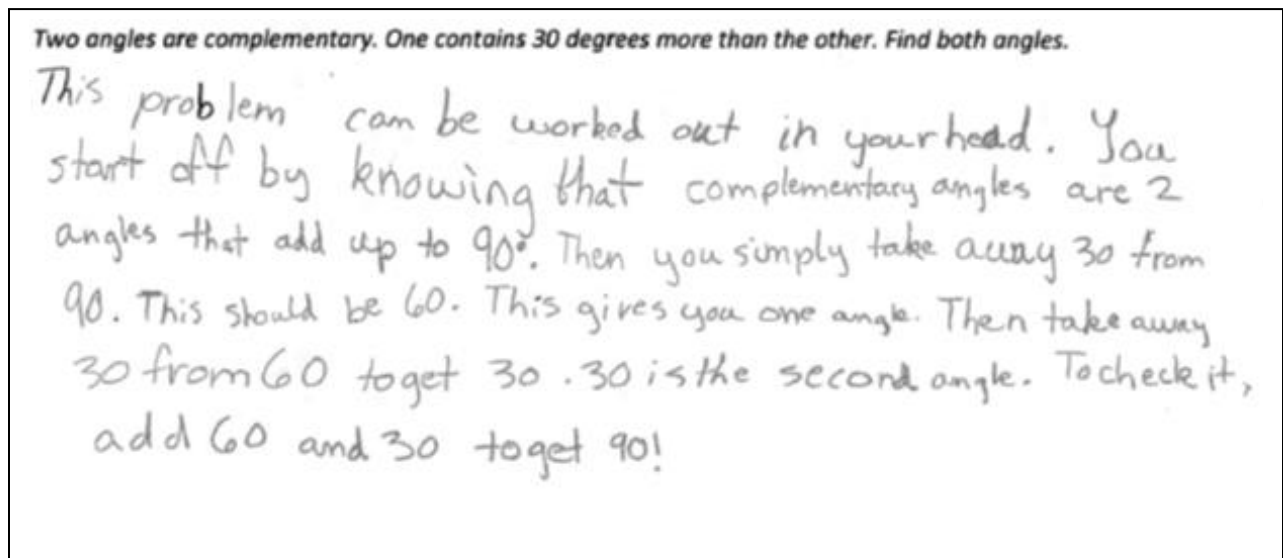 Two angles are complementary. One contains 30 degrees more than the other. Find both angles.
This problem can be worked out in your head. You
start off by knowing that complementary angles are 2
angles that add up to 90°. Then you simply take away 30 from
90. This should be 60. This gives you one angle. Then take away
30 from 60 to get 30. 30 is the second angle. To check it,
add 60 and 30 to get 90!